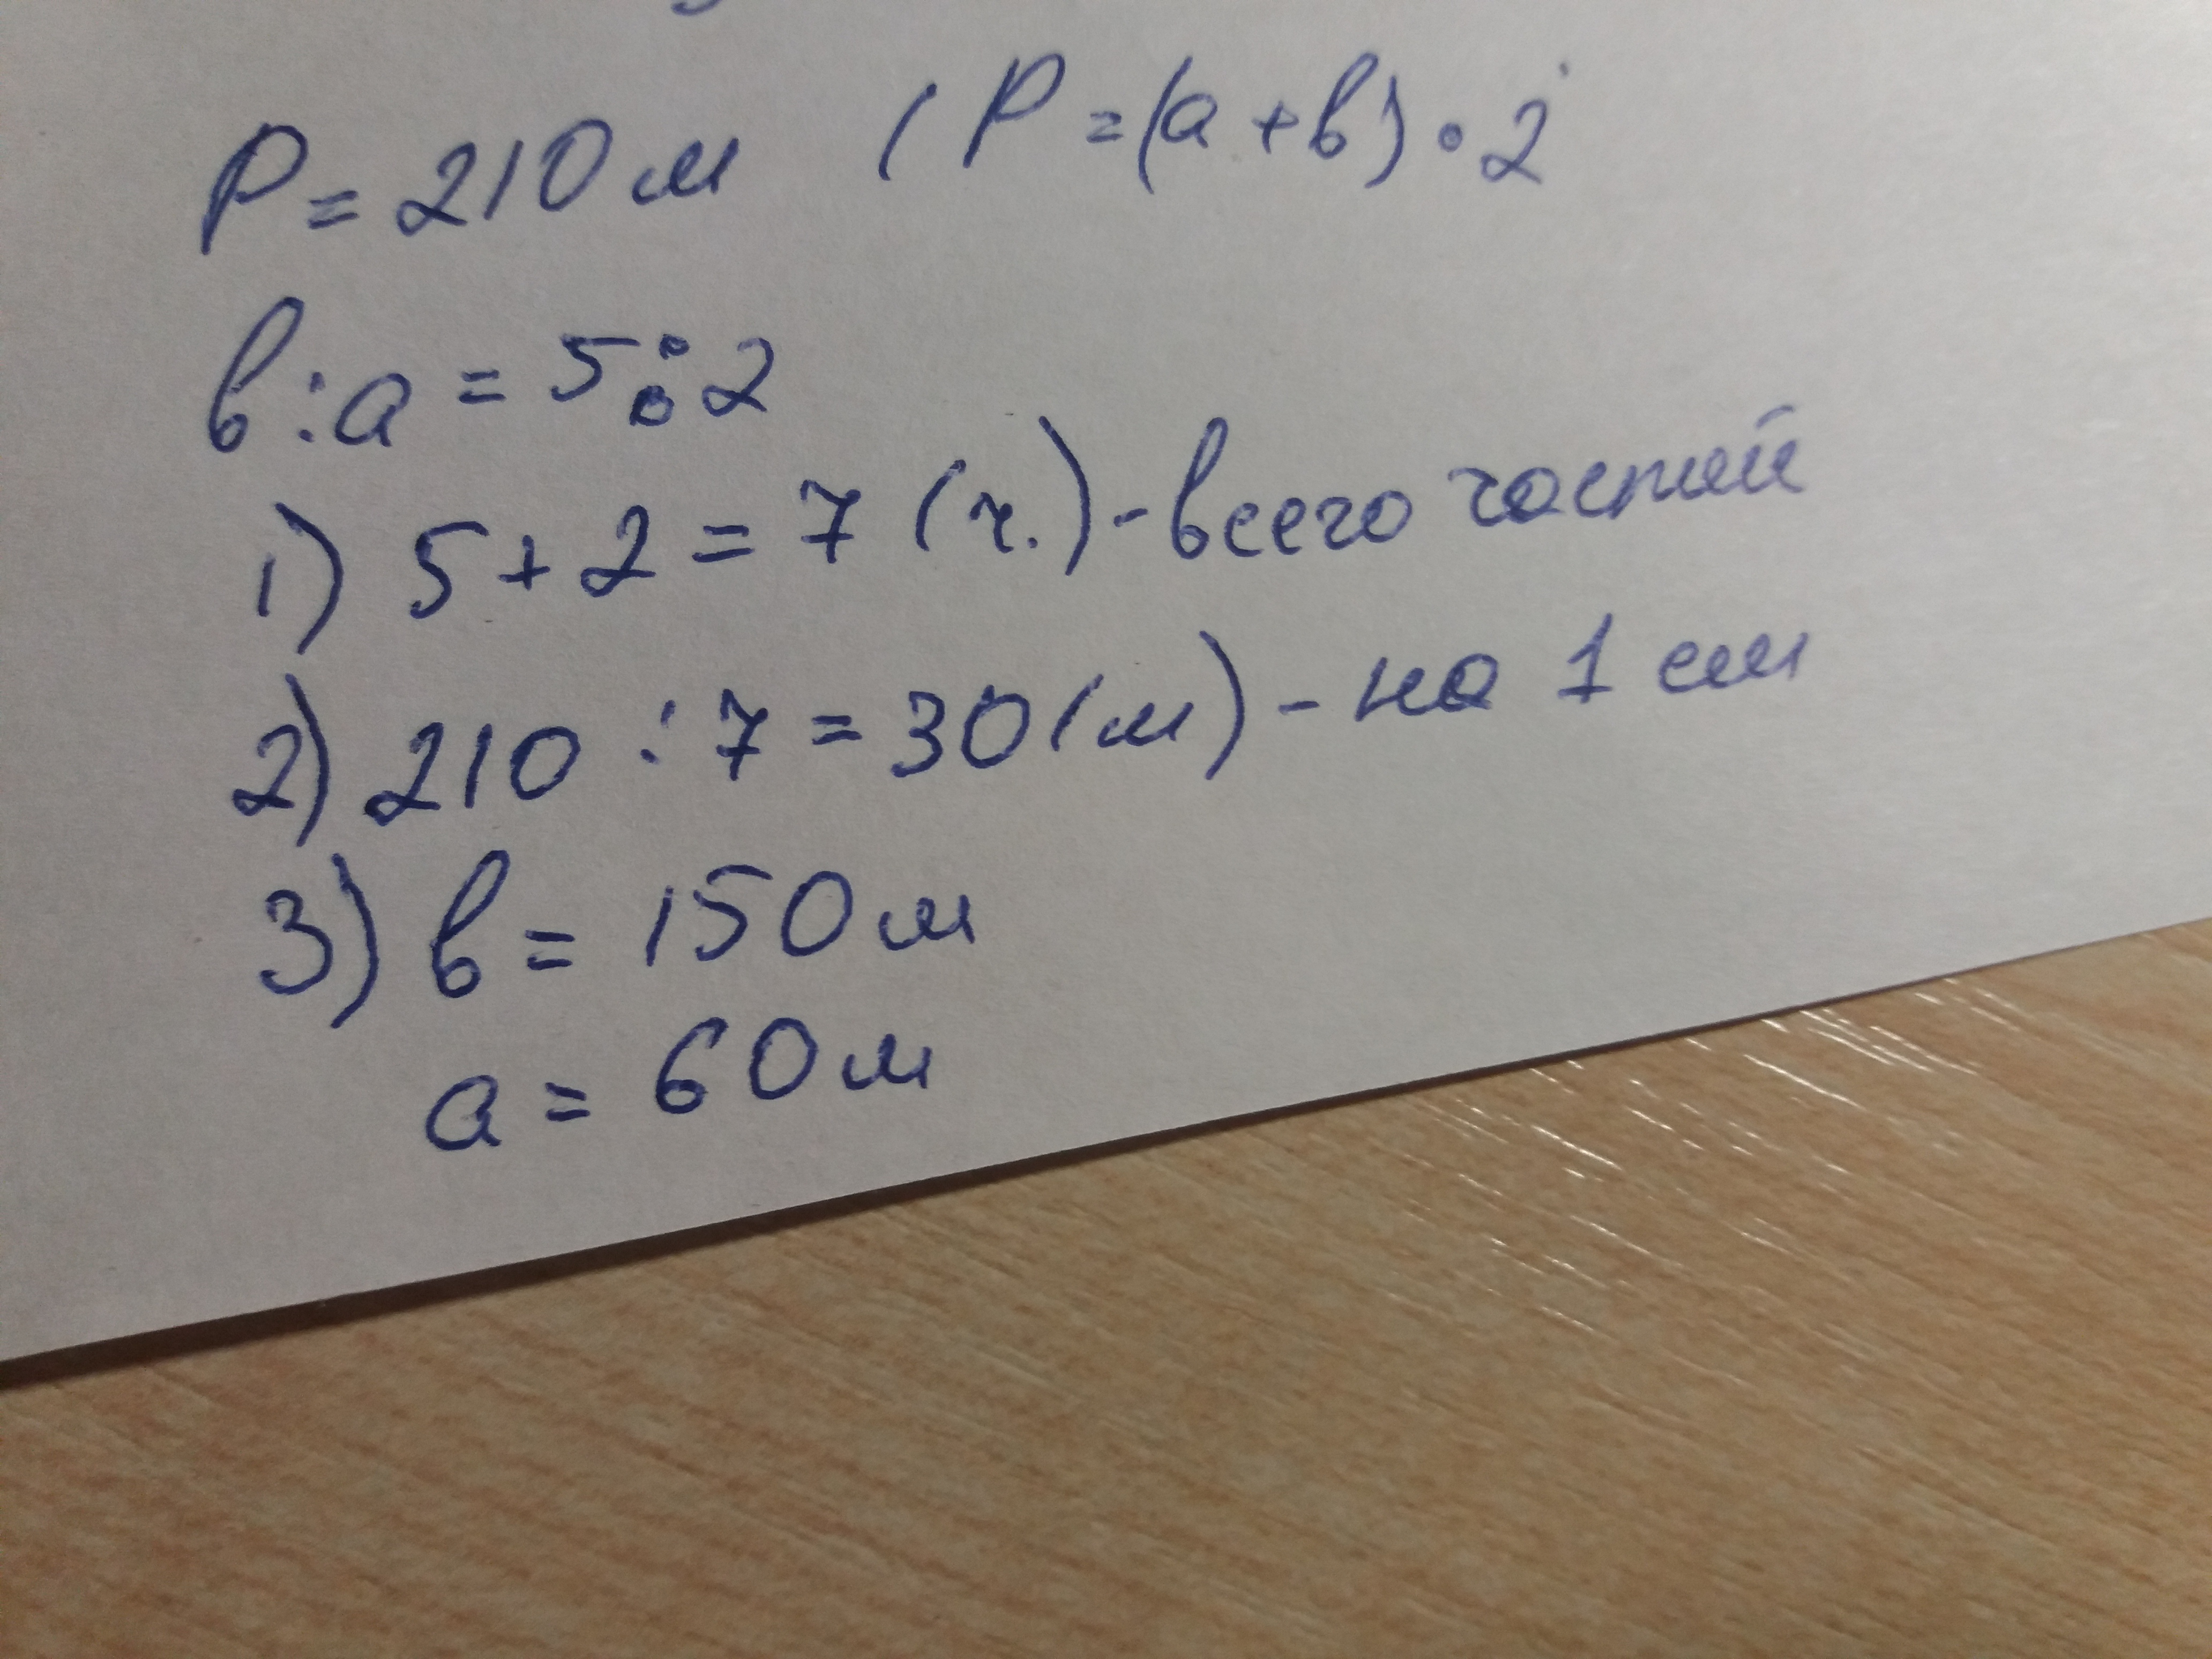 P = 210 м (P = (a + в) · 2
в : a = 5 : 2
1) 5 + 2 = 7 (ч.) - всего частей
2) 210 : 7 = 30 (м) - на 1 см
3) в = 150 м
a = 60 м